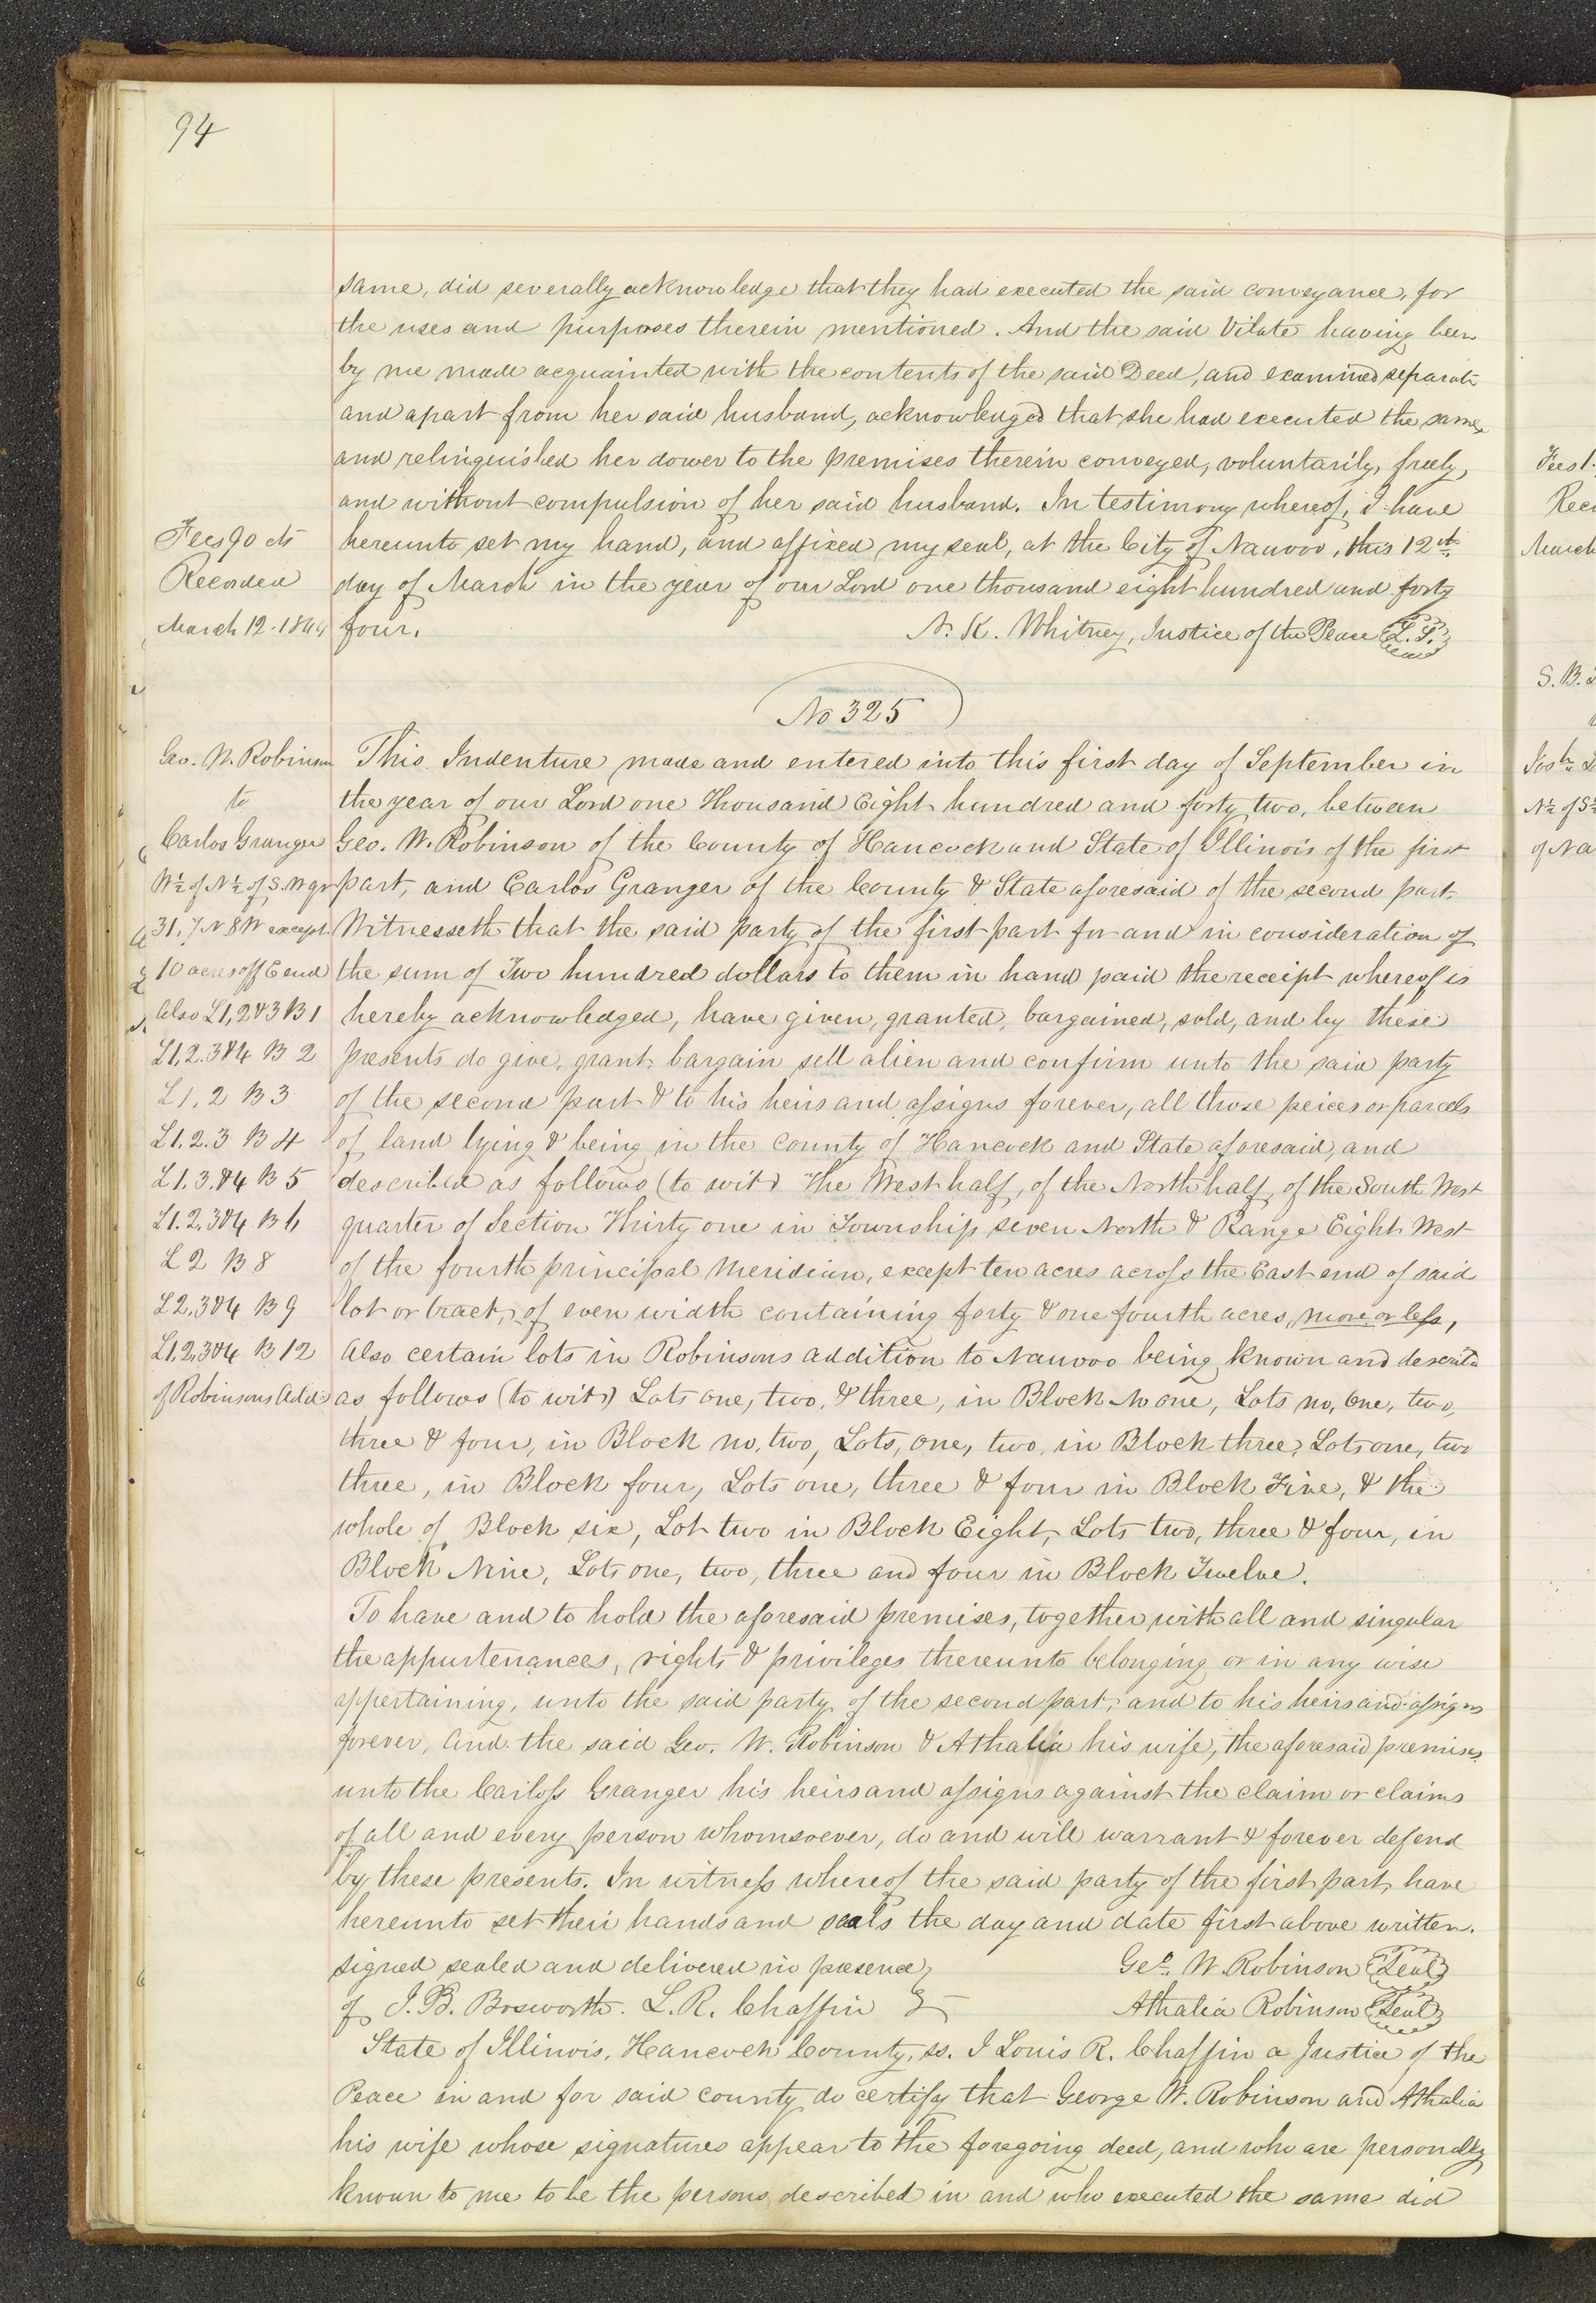 94
same, did severally acknowledge that they had executed the said conveyance, for
the uses and purposes therein mentioned. And the said Vilate having been
by me made acquainted with the contents of the said Deed, and examined separate
and apart from her said husband, acknowledged that she had executed the same,
and relinquished her dower to the premises therein conveyed, voluntarily, freely,
and without compulsion of her said husband. In testimony whereof, I have
hereunto set my hand, and affixed my seal, at the City of Nauvoo, this 12th
day of March in the year of our Lord one thousand eight hundred and forty
four.
N. K. Whitney, Justice of the Peace L.S.
Fees 90 cts
Recorded
March 12. 1844
No 325
Geo. W. Robinson
to
Carlos Granger
W½ of N½ of S.W qr
31, 7 N 8 W except
10 acres off E end
Also L1, 2 & 3 B 1
L1, 2. 3 & 4 B 2
L1, 2 B 3
L1. 2. 3 B 4
L1. 3. & 4 B 5
L1. 2, 3 & 4 B 6
L 2 B 8
L 2, 3 & 4 B 9
L1, 2, 3 & 4 B 12
of Robinsons Add
This Indenture made and entered into this first day of September in
the year of our Lord one Thousand Eight hundred and forty two, between
Geo. W. Robinson of the County of Hancock and State of Illinois of the first
part, and Carlos Granger of the County & State aforesaid of the second part.
Witnesseth that the said party of the first part for and in consideration of
the sum of Two hundred dollars to them in hand paid the receipt whereof is
hereby acknowledged, have given, granted, bargained, sold, and by these
presents do give, grant, bargain sell alien and confirm unto the said party
of the second part & to his heirs and assigns forever, all those peices or parcels
of land lying & being in the County of Hancock and State aforesaid, and
described as follows (to wit) The West half, of the North half, of the South West
quarter of Section Thirty one in Township seven North & Range Eight West
of the fourth principal Meridian, except ten acres across the East end of said
lot or tract, of even width containing forty & one fourth acres, more or less,
Also certain lots in Robinsons addition to Nauvoo being known and describd
as follows (to wit) Lots one, two, & three, in Block No one, Lots no, One, two,
three & four, in Block no, two, Lots, one, two, in Block three, Lots one, two
three, in Block four, Lots one, three & four in Block Five, & the
whole of Block six, Lot two in Block Eight, Lots two, three & four, in
Block Nine, Lots one, two, three and four in Block Twelve.
To have and to hold the aforesaid premises, together with all and singular
the appurtenances, rights & privileges thereunto belonging or in any wise
appertaining, unto the said party of the second part, and to his heirs and assigns
forever, And the said Geo. W. Robinson & Athalia his wife, the aforesaid premises
unto the Carloss Granger his heirs and assigns against the claim or claims
of all and every person whomsoever, do and will warrant & forever defend
by these presents. In witness whereof the said party of the first part, have
hereunto set their hands and seals the day and date first above written.
signed sealed and delivered in presence
of J. B. Bosworth. L. R. Chaffin
Geo. W. Robinson Seal
Athalia Robinson Seal
State of Illinois, Hancock County, ss. I Louis R. Chaffin a Justice of the
Peace in and for said county do certify that George W. Robinson and Athalia
his wife whose signatures appear to the foregoing deed, and who are personally
known to me to be the persons described in and who executed the same did
Fees 1.
March
S. B.
N½ of S½
of Na